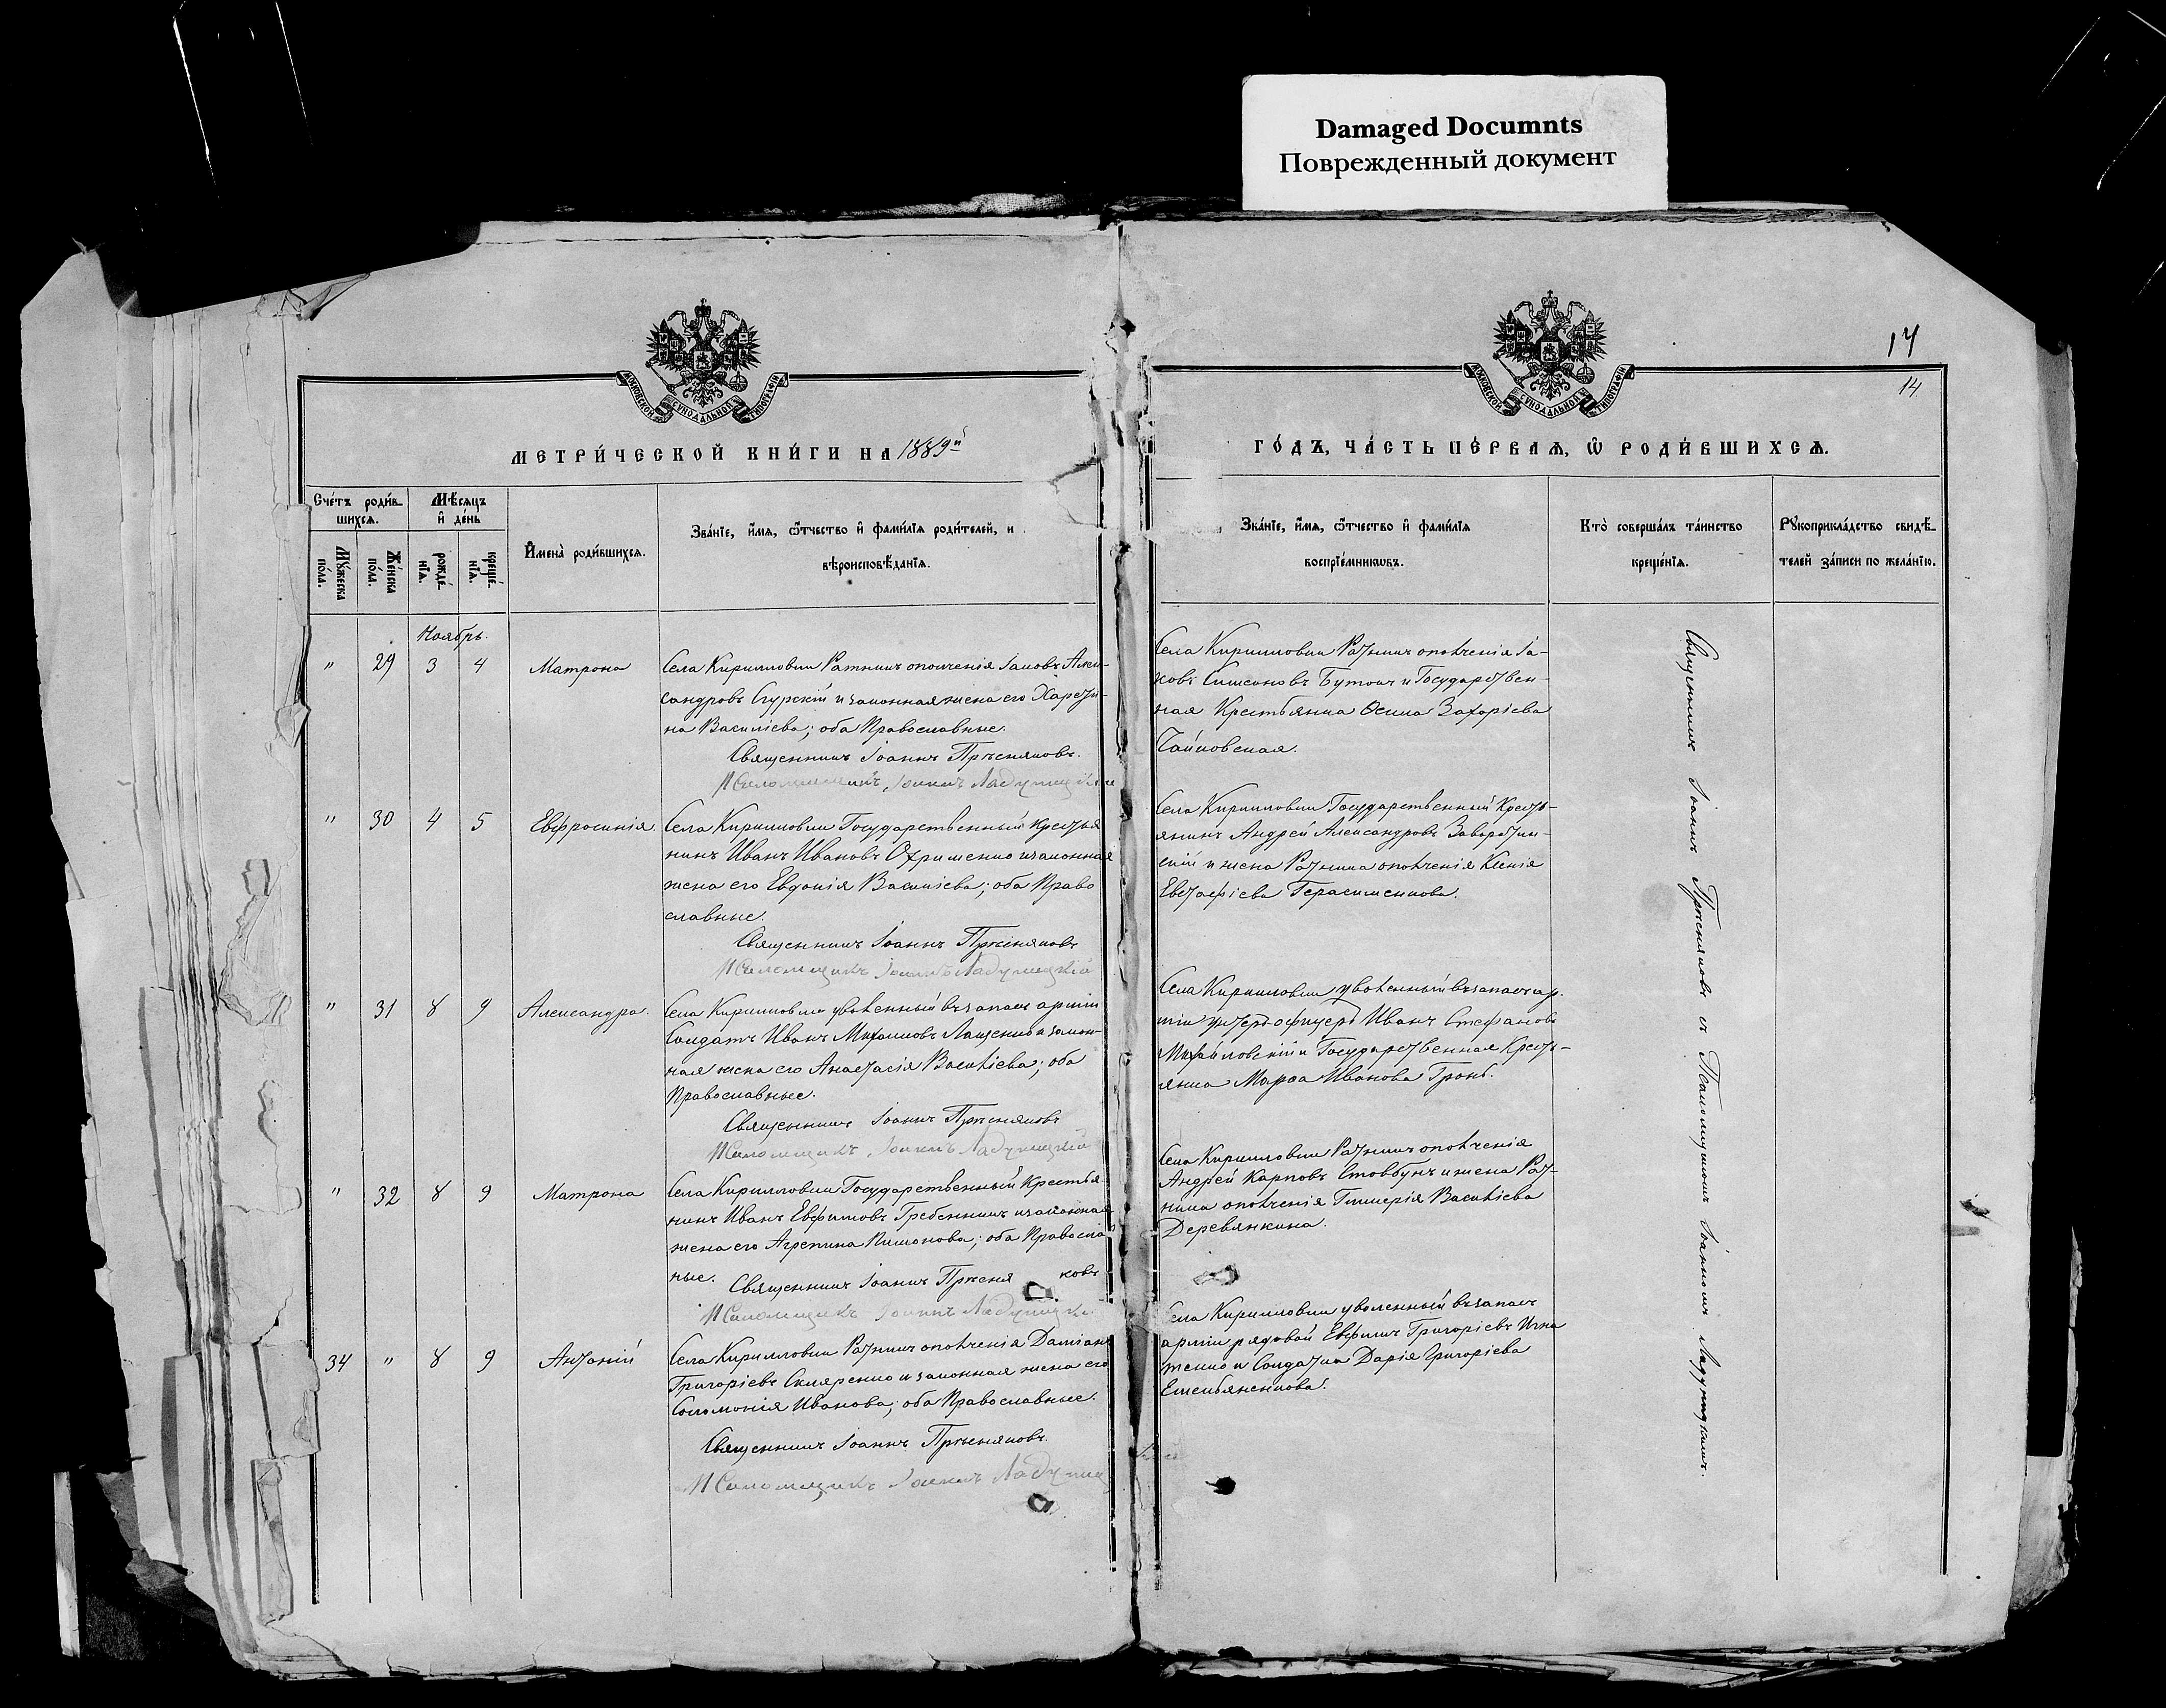 Damaged Documnts
Поврежденный документ
17
14
МОСКОВСКОЙ СѴНОДАЛЬНОЙ ТИПОГРАФІИ
МОСКОВСКОЙ СѴНОДАЛЬНОЙ ТИПОГРАФІИ
МЕТРИ́ЧЕСКОЙ КНИ́ГИ НА 1889й
ГО́ДЪ, ЧА́СТЬ ПЕ́РВАѦ, Ѿ РОДИ́ВШИХСѦ.
Сче́тъ роди́в-
шихсѧ.
Мѣ́сяцъ
и҆ де́нь
Мꙋ́жеска
по́ла.
Же́нска
по́ла.
рожде́-
нїѧ.
креще́-
нїѧ.
И҆мена̀ роди́вшихсѧ.
Зва́нїе, и҆́мѧ, ѻ҆́тчество и҆ фами́лїѧ роди́телей, и
вѣроисповѣ́данїѧ.
Зва́нїе, и҆́мѧ, ѻ҆́тчество и҆ фами́лїѧ
воспрїе́мникѡвъ.
Кто̀ соверша́лъ та́инство
креще́нїѧ.
Рꙋкоприкла́дство свидѣ́-
телей за́писи по жела́нїю.
Ноябрь.
" 29 3 4 Матрона
Села Кирилловки Ратникъ ополченія Іаковъ Алек-
сандровъ Сгурскій и законная жена его Харити-
на Василіева; оба Православные.
Священникъ Іоаннъ Прѣсняковъ.
Псаломщикъ Іоаннъ Ладухицкій
Села Кирилловки Ратникъ ополченія Іа-
ковъ Симеоновъ Бутокъ и Государствен-
ная Крестьянка Захаріева
Чайковская.
" 30 4 5 Евфросинія.
Села Кирилловки Государственный Крестья
нинъ Иванъ Ивановъ Охрименко и законная
жена его Евдокія Василіева; оба Право
славные.
Священникъ Іоаннъ Прѣсняковъ
Псаломщикъ Іоаннъ Ладухицкій
Села Кирилловки Государственный Кресть-
янинъ Андрей Александровъ
скій и жена Ратника ополченія Ксенія
Евстафіева Герасименкова.
" 31 8 9 Александра.
Села Кирилловки уволенный въ запасъ арміи
Солдатъ Иванъ Михаиловъ Лащенко и закон-
ная жена его Анастасія Василіева; оба
Православные.
Священникъ Іоаннъ Прѣсняковъ
Псаломщикъ Іоаннъ Ладухицкій
Села Кирилловки уволенный въ запасъ ар-
міи унтеръ-офицеръ Иванъ Стефановъ
Михайловскій и Государственная Кресть-
янка Марѳа Иванова
" 32 8 9 Матрона
Села Кирилловки Государственный Крестья
нинъ Иванъ Евфимовъ Гребенникъ и законная
жена его Агрепина Пимонова; оба Правосла
ные.
Священникъ Іоаннъ Прѣсняковъ
Псаломщикъ Іоаннъ Ладухицкій
Села Кирилловки Ратникъ ополченія
Андрей Карповъ Стовбунъ и жена Рат-
ника ополченія Гликерія Василіева
Деревянкина.
34 " 8 9 Антоній
Села Кирилловки Ратникъ ополченія Даміанъ
Григоріевъ Скляренко и законная жена его
Соломонія Иванова; оба Православные.
Священникъ Іоаннъ Прѣсняковъ.
Псаломщикъ Іоаннъ Ладухиц
Села Кирилловки уволенный въ запасъ
арміи рядовой Евфимъ Григоріевъ Игна
тенко и Солдатка Дарія Григоріева
Емельяненкова.
Священникъ Іоаннъ Прѣсняковъ съ Псаломщикомъ Іоанномъ Ладухицкимъ.